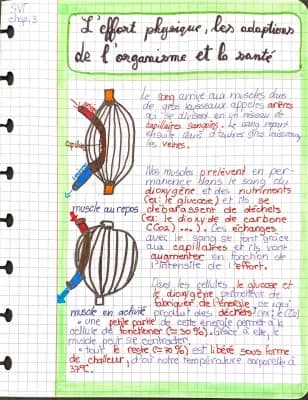 SVT
chap.3
L'effort physique, les adaptions
de l'organisme et la santé
Le sang arrive aux muscles dans
de gros vaisseaux appelés artères
qui se divisent en un réseau de
capillaires sanguins. Le sang repart
ensuite dans d'autres gros vaisseaux,
les veines.
Capillaires
muscle au repos
Nos muscles prélèvent en per-
manence dans le sang du
dioxygène et des nutriments
(ex: le glucose) et ils se
débarassent de déchets
(ex: le dioxyde de carbone
(CO2) ...). Ces échanges
avec le sang se font grâce
aux capillaires et ils vont
augmenter en fonction de
l'intensité de l'effort.
muscle en activité
Dans les cellules, le glucose et
le dioxygène permettent de
fabriquer de l'énergie, ce qui
produit des déchets (ex: le CO2)
• une petite partie de cette énergie permet à la
cellule de fonctionner (≈ 30 %). Grâce à elle, le
muscle peut se contracter.
• tout le reste (≈ 70 %) est libéré sous forme
de chaleur, d'où notre température corporelle à
37°C.